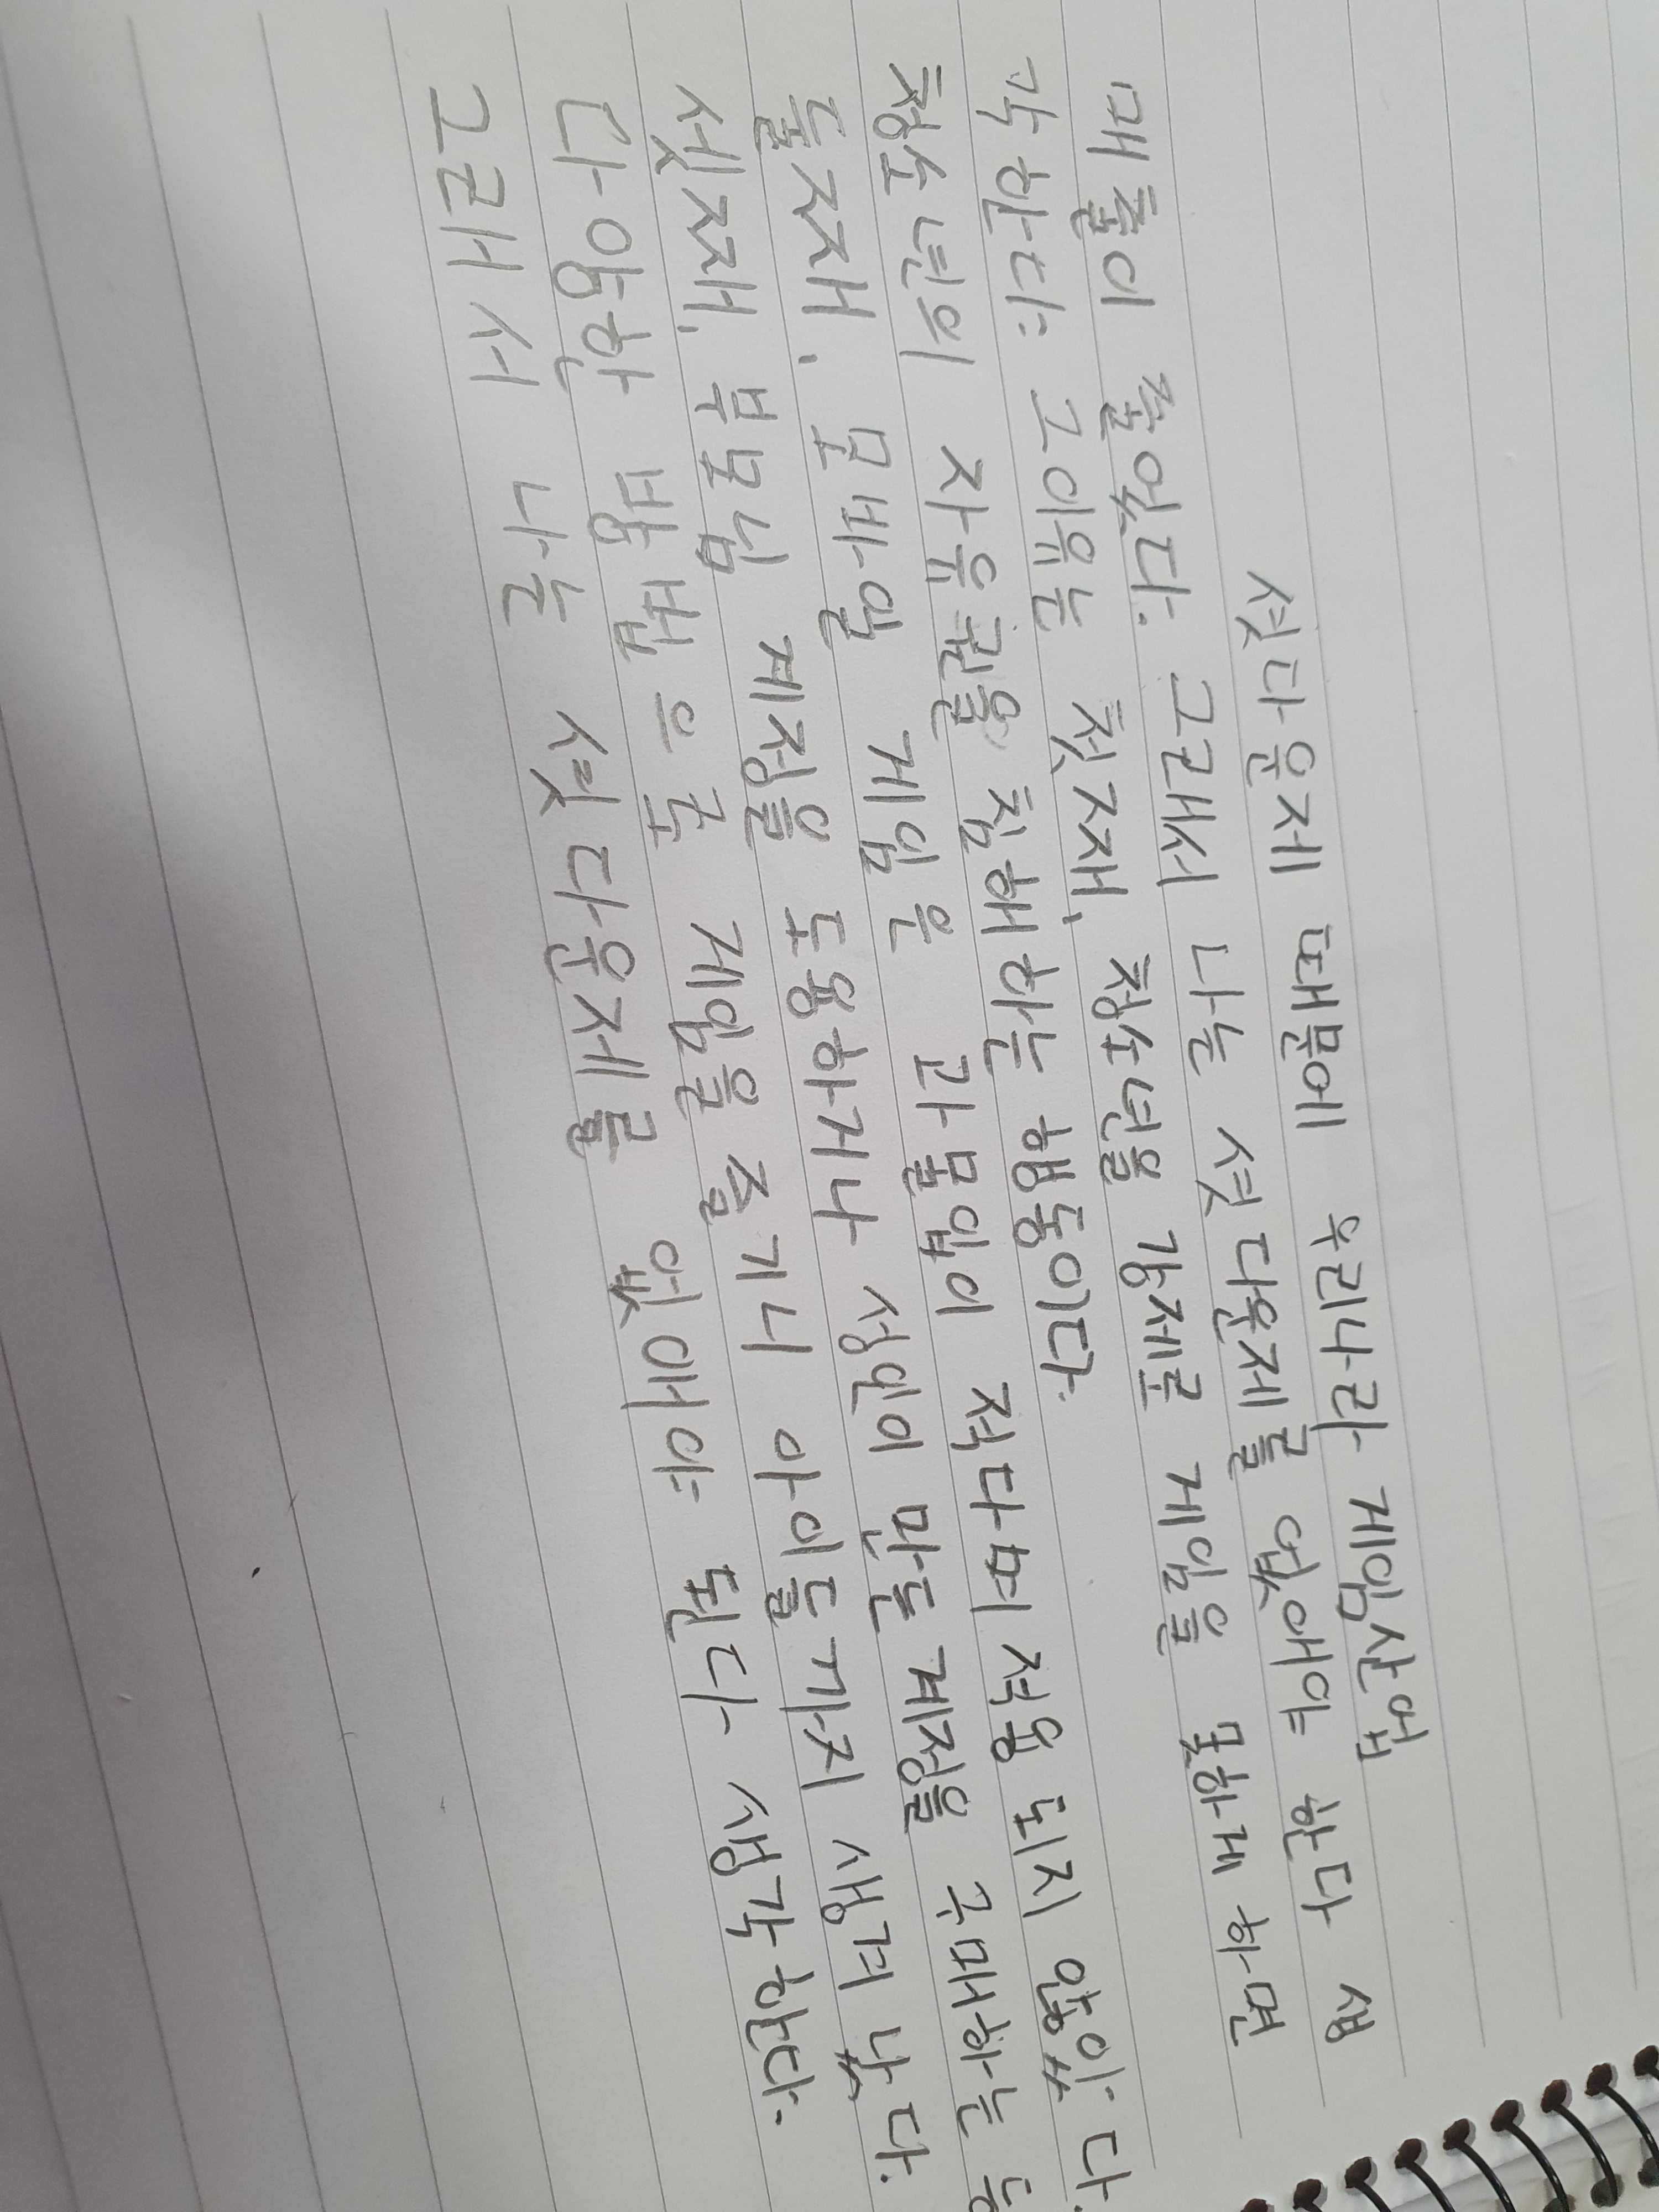 셧다운제 때문에 우리나라 게임산업
매출이 줄었다. 그래서 나는 셧다운제를 없애야 한다 생
각한다. 그이유는 첫째, 청소년을 강제로 게임을 못하게 하면
청소년의 자유권을 침해하는 행동이다.
둘째, 모바일 게임은 과몰입이 적다며 적용 되지 않았다.
셋째, 부모님 계정을 도용하거나 성인이 만든 계정을 구매하는 등
다양한 방법으로 게임을 즐기니 아이들까지 생겨 났다.
그래서 나는 셧다운제를 없애야 된다 생각한다.